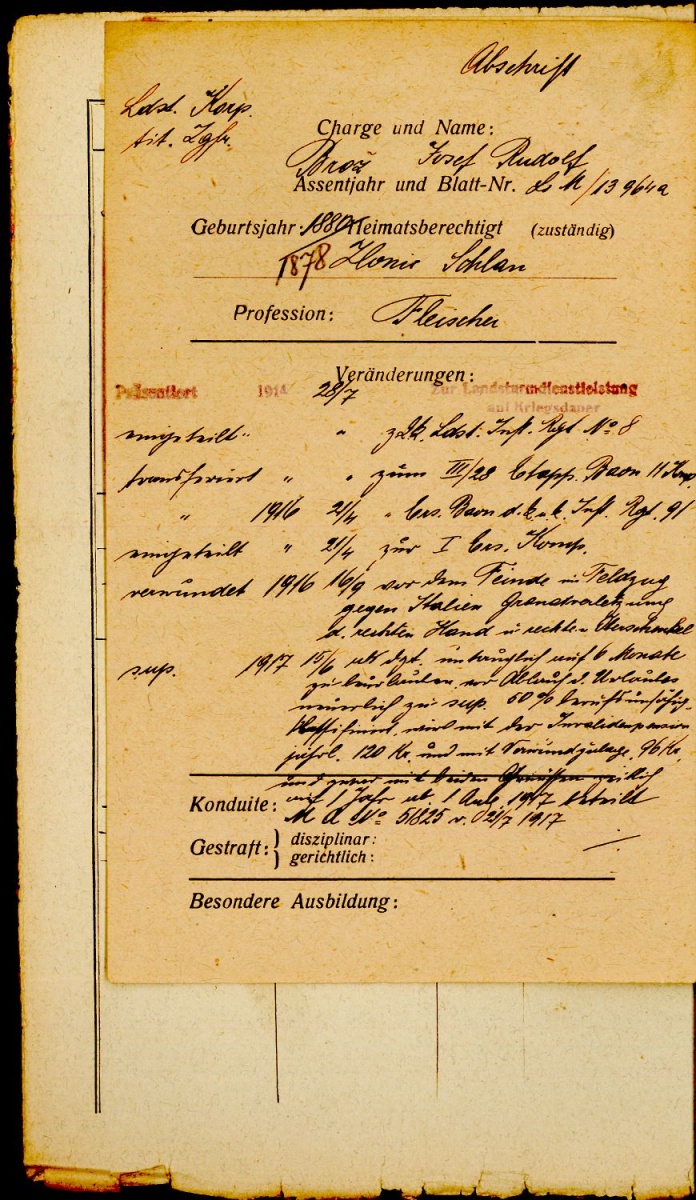 Abschrift
Ldst. Korp.
tit. Zgfr.
Charge und Name:
Brož Josef Rudolf
Assentjahr und Blatt-Nr. L M/13964a
Geburtsjahr: 1880 Heimatsberechtigt (zuständig)
1878 Zlonic Schlan
Profession: Fleischer
Veränderungen:
Präsentiert 1914 28/7 Zur Landsturmdienstleistung
auf Kriegsdauer
eingeteilt " " z. k.k. Ldst. Inft. Rgt No 8
transferiert " " zum III/28 Etapp. Baon 11 Komp.
" 1916 2/4 " Ers. Baon d. k.u.k. Inft. Rgt. 91
eingeteilt " 21/4 zur I Ers. Komp.
verwundet 1916 16/9 vor dem Feinde im Feldzug
gegen Italien Granatverletzung
d. rechten Hand u rechten
sup. 1917 15/6 als dzt. untauglich auf 6 Monate
zu beurlauben, vor Ablauf d. Urlaubes
neuerlich zu sup. 50% berufsunfähig
klassifiziert, wird mit der Invalidenpension
jährl. 120 Kr. und mit Verwundzulage 96 Kr.
und zwar mit beiden Genüssen zeitlich
Konduite: auf 1 Jahr ab 1 Aug. 1917 beteilt
M A No 51825 v. 21/7 1917
Gestraft: disziplinar:
gerichtlich:
Besondere Ausbildung: